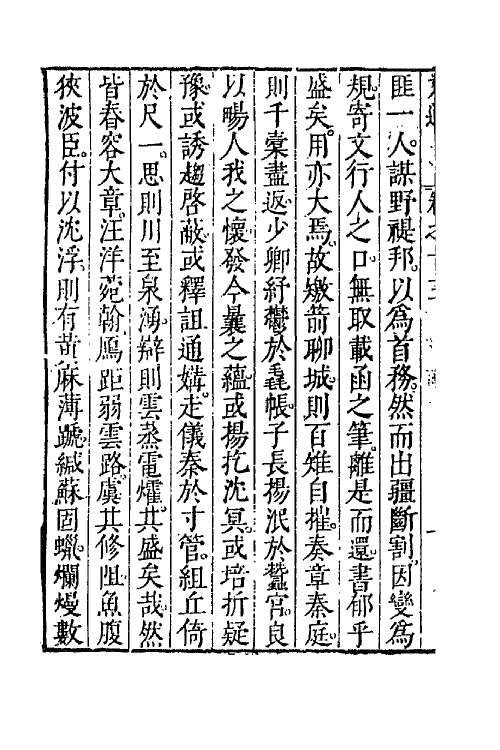 匪一人。謀野禔邦。以為首務。然而出疆斷割。因變為
規。寄文行人之口。無取載函之筆。離是而還。書郁乎
盛矣。用亦大焉。故燩箭聊城。則百雉自摧。奏章秦庭。
則千槖盡返。少卿紓鬱於毳帳。子長揚泯於蠶官。良
以暢人我之懷。發今曩之蘊。或揚扢沈冥。或培折疑
豫。或誘趨啓蔽。或釋詛通媾。走儀秦於寸管。組丘倚
於尺一。思則川至泉湧。辯則雲蒸電爟。其盛矣哉。然
皆舂容大章。汪洋菀翰。鴈距弱雲路。虞其修阻。魚腹
狹波臣。付以沈浮。則有苛麻薄蹏。緘蘇固蠟。爛熳數